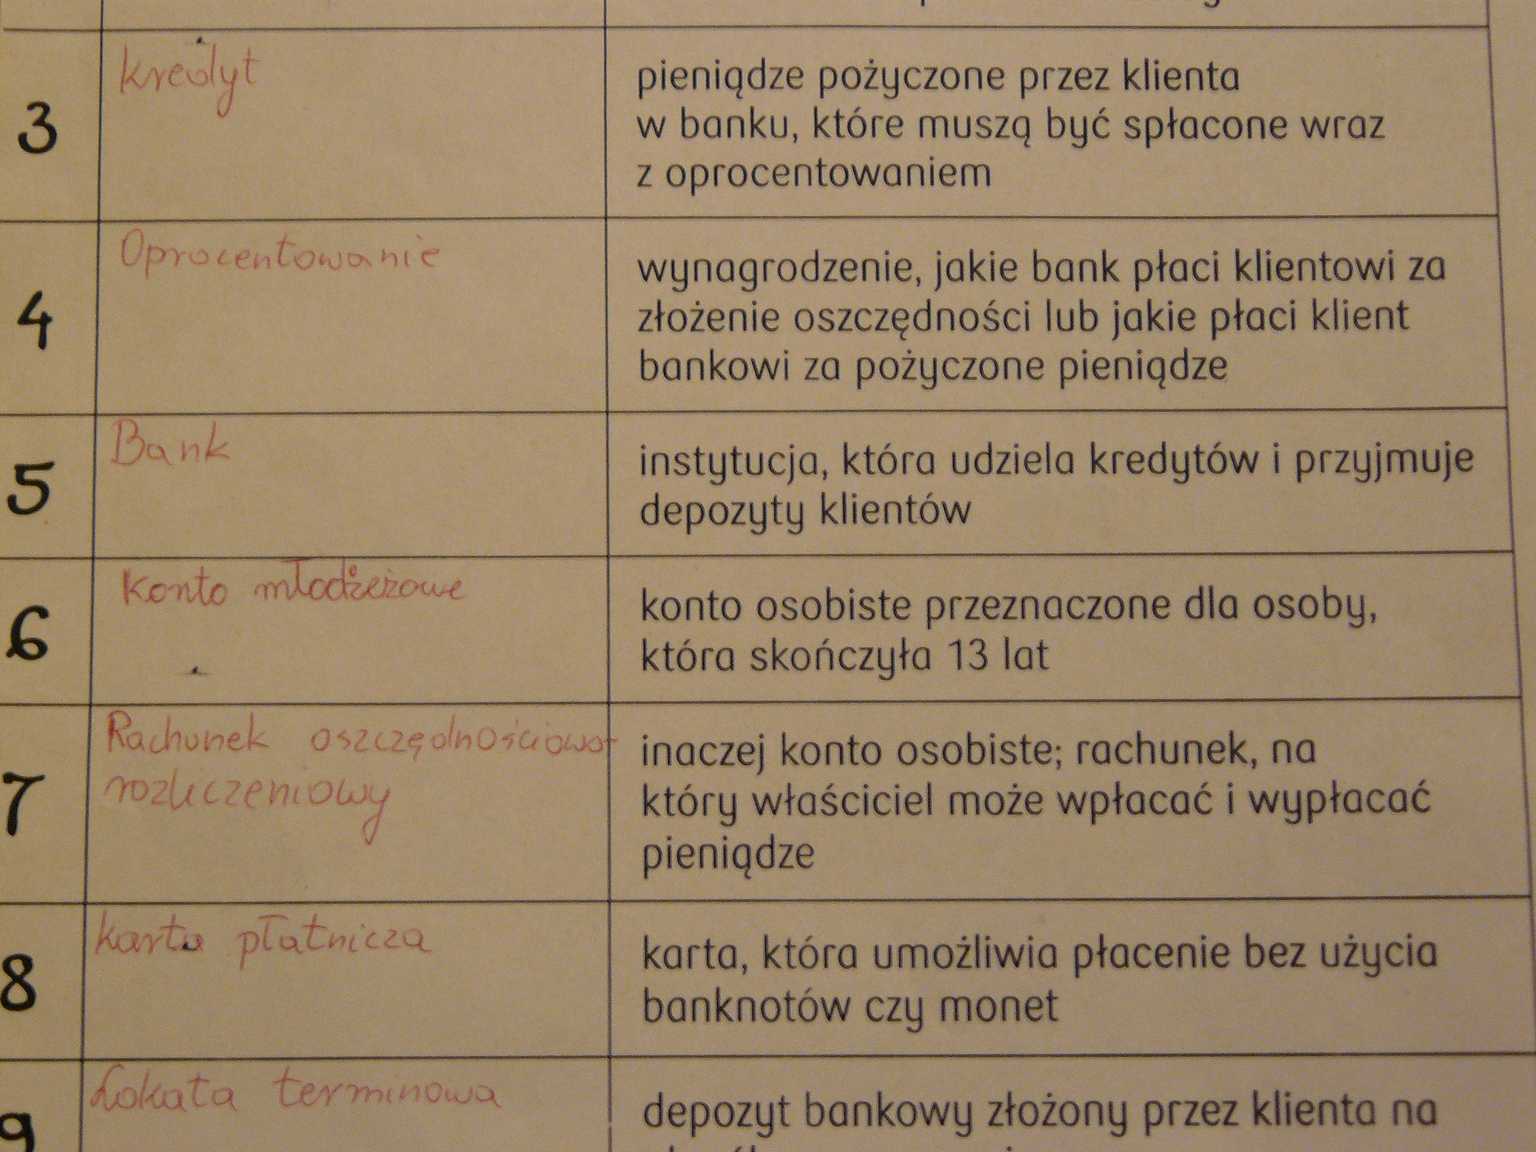 3
kredyt
pieniądze pożyczone przez klienta
w banku, które muszą być spłacone wraz
z oprocentowaniem
4
Oprocentowanie
wynagrodzenie, jakie bank płaci klientowi za
złożenie oszczędności lub jakie płaci klient
bankowi za pożyczone pieniądze
5
Bank
instytucja, która udziela kredytów i przyjmuje
depozyty klientów
6
Konto młodzeżowe
konto osobiste przeznaczone dla osoby,
która skończyła 13 lat
7
Rachunek oszczędnościowo-
rozliczeniowy
inaczej konto osobiste; rachunek, na
który właściciel może wpłacać i wypłacać
pieniądze
8
karta płatnicza
karta, która umożliwia płacenie bez użycia
banknotów czy monet
9
Lokata terminowa
depozyt bankowy złożony przez klienta na